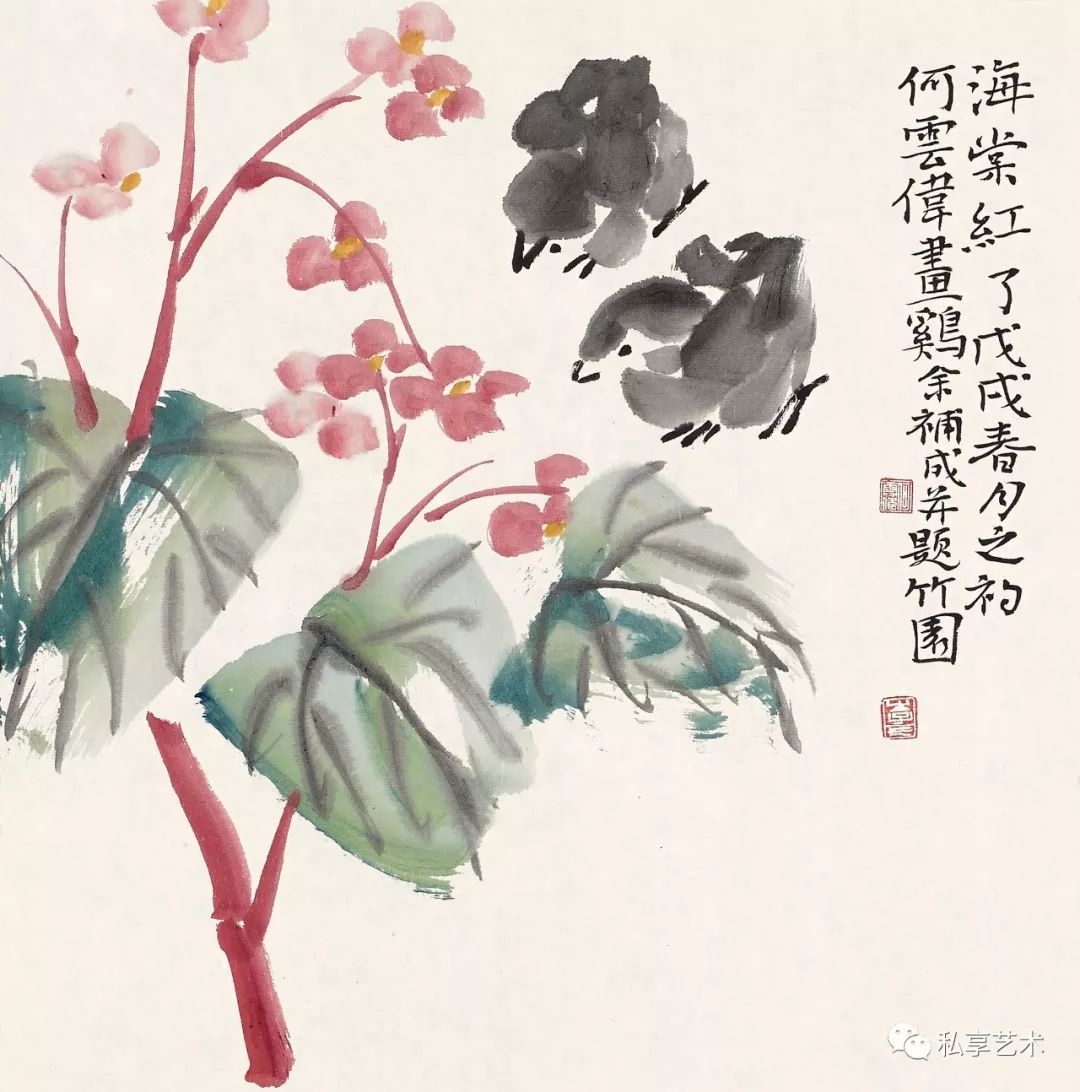 海棠紅了戊戌春月之初
何雲偉畫鷄余補成并題竹園
私享艺术